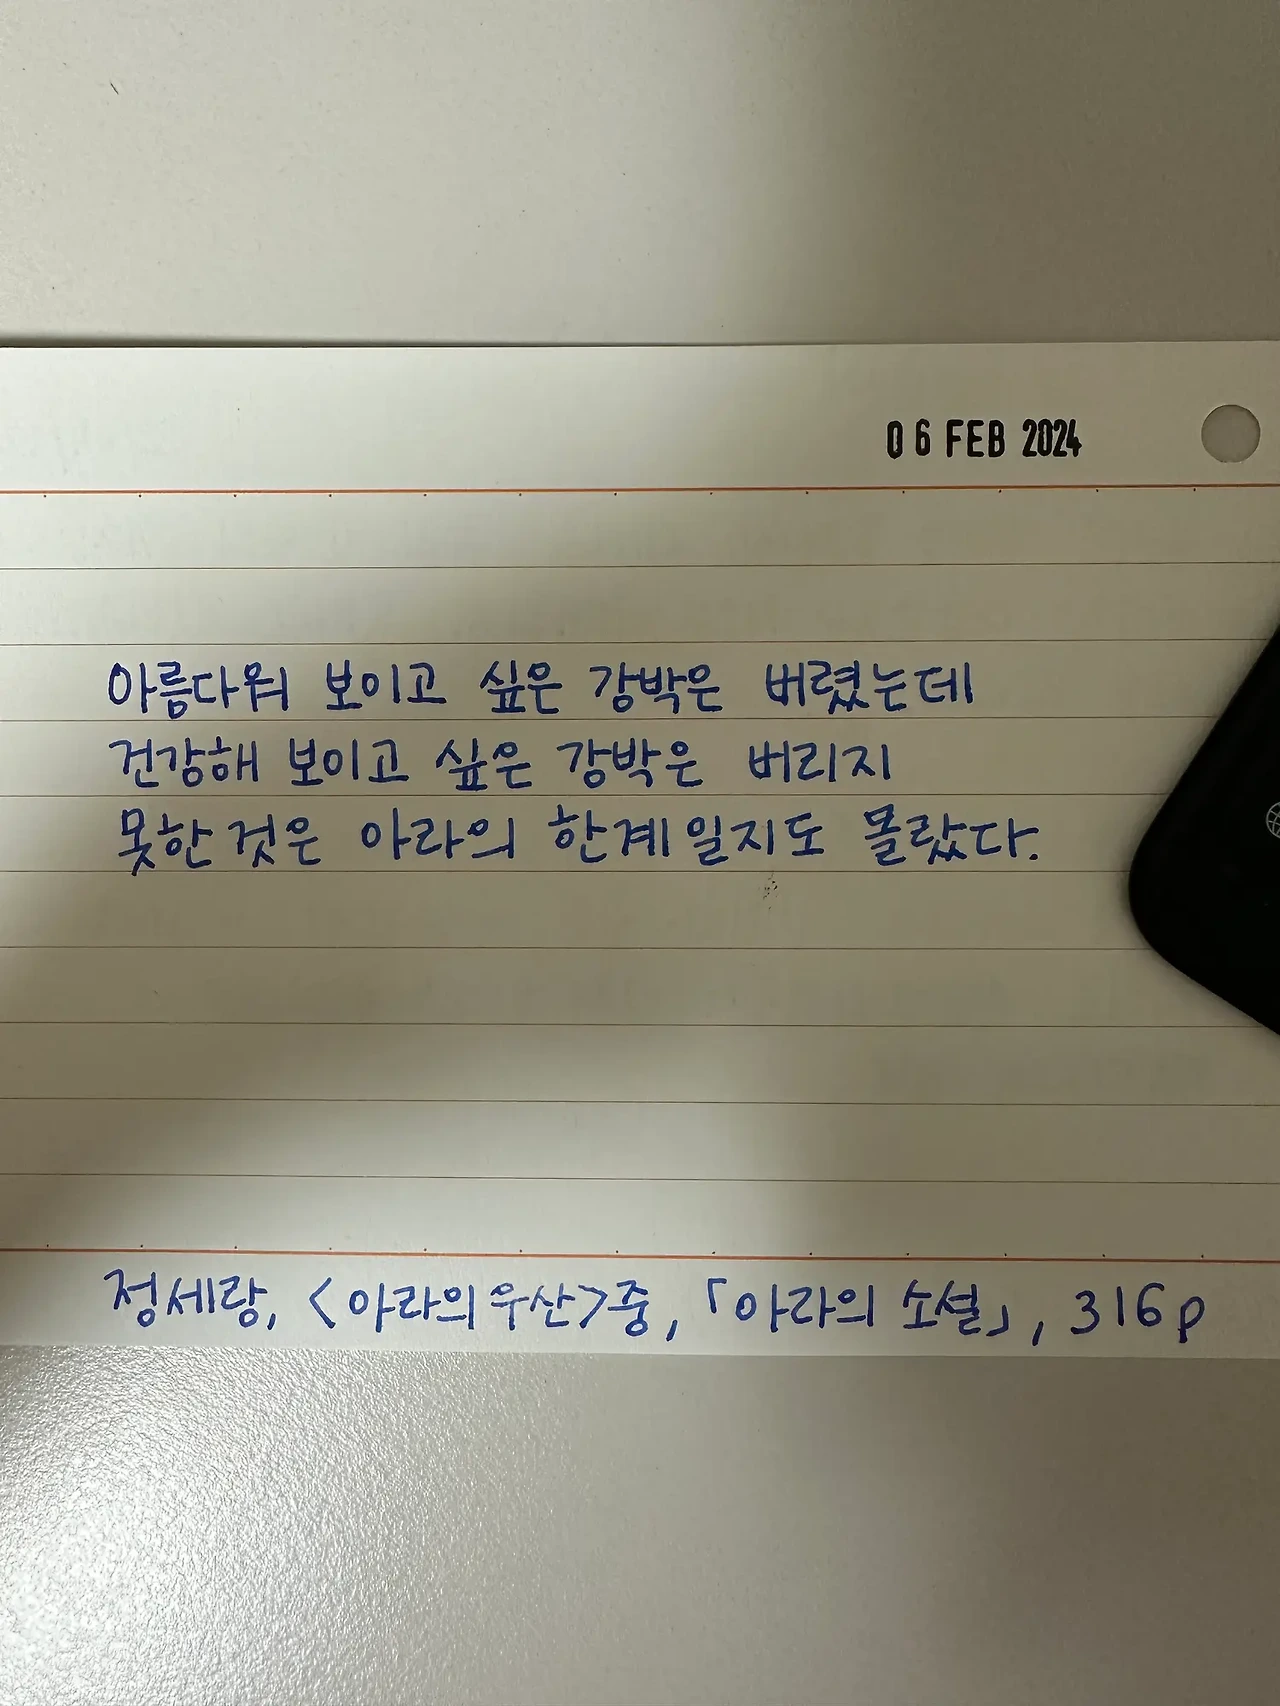 06 FEB 2024
아름다워 보이고 싶은 강박은 버렸는데
건강해 보이고 싶은 강박은 버리지
못한 것은 아라의 한계일지도 몰랐다.
정세랑, <아라의 우산>중, 「아라의 소설」, 316p